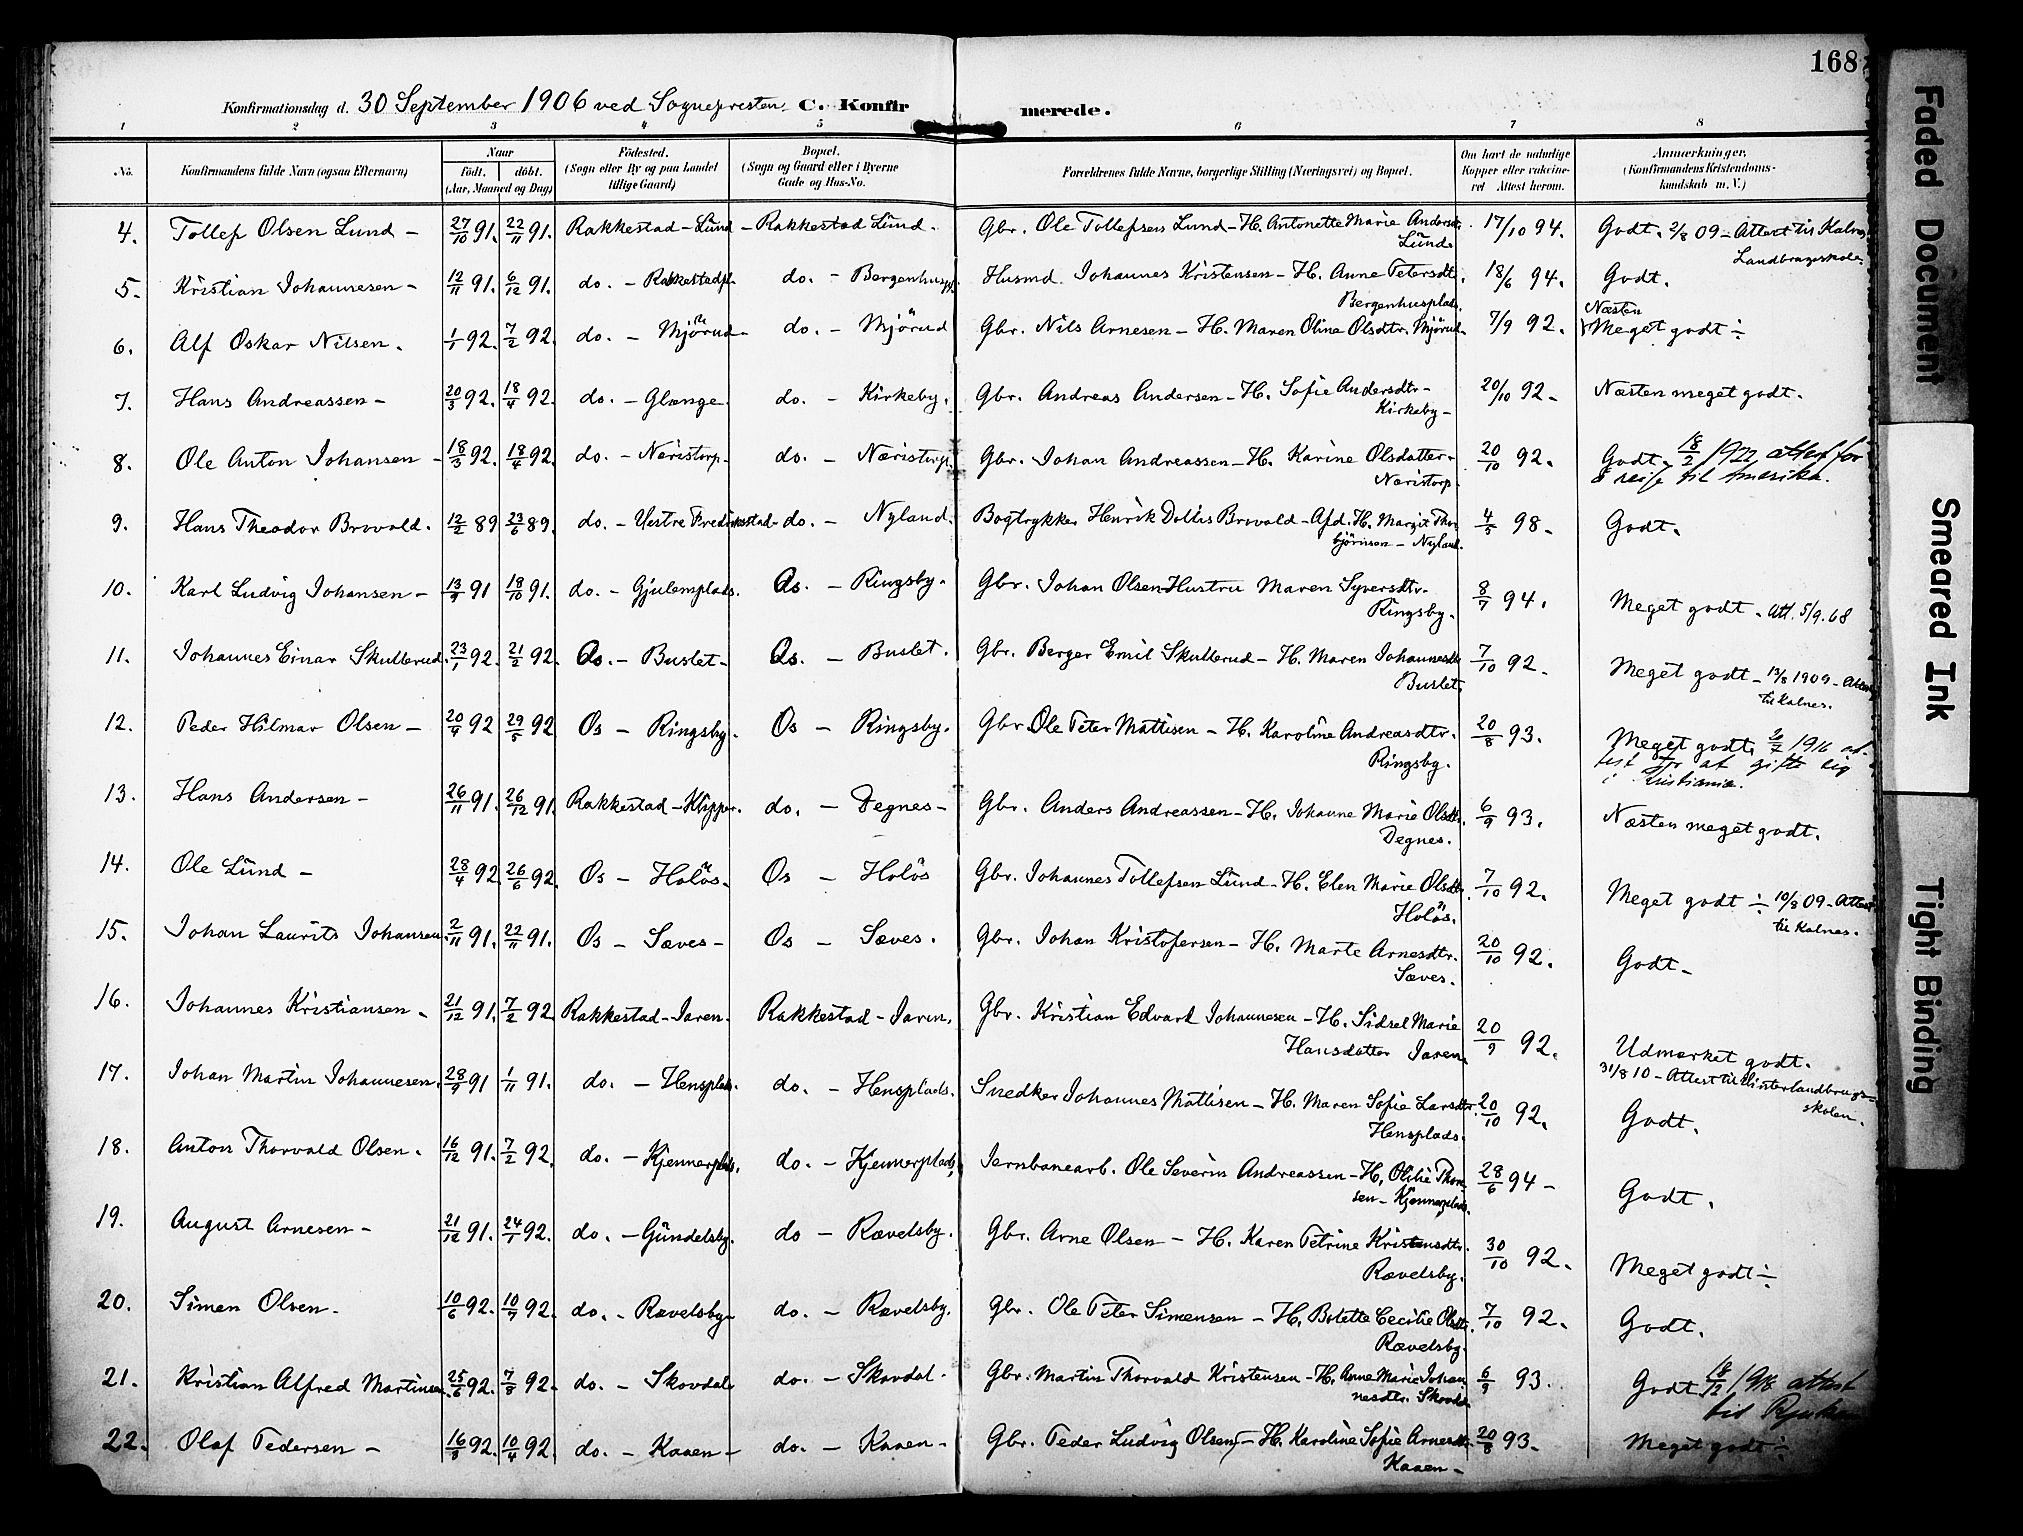 168
Konfirmationsdag d. 30 September 1906 ved Sognepresten. C. Konfirmerede.
1 2 3 4 5 6 7 8
No. Konfirmandens fulde Navn (ogsaa Efternavn) Naar Født. døbt. (Aar, Maaned og Dag) Fødested. (Sogn eller By og paa Landet tillige Gaard) Bopæl. (Sogn og Gaard eller i Byerne Gade og Hus-No. Forældrenes fulde Navne, borgerlige Stilling (Næringsvei) og Bopæl. Om havt de naturlige Kopper eller vakcineret Attest herom. Anmærkninger. (Konfirmandens Kristendomskundskab m. V.)
4. Tollef Olsen Lund - 27/10 91. 22/11 91. Rakkestad - Lund - Rakkestad Lund. Gbr. Ole Tollefsen Lund - H. Antonette Marie Andersdt. Lund. 17/10 94. Godt. 2/8 09 - Attest til Kalnes Landbrugsskole.
5. Kristian Johannesen - 12/11 91. 6/12 91. do. - Rakkestadpl. do. - Bergenhuspl. Husmd. Johannes Kristensen - H. Anne Petersdt. Bergenhusplads. 18/6 94. Godt.
6. Alf Oskar Nilsen. 1/1 92. 7/2 92. do. - Mjørud - do. - Mjørud Gbr. Nils Arnesen - H. Maren Oline Olsdtr. Mjørud. 7/9 92. Næsten Meget godt ÷
7. Hans Andreassen - 20/3 92. 18/4 92. do. - Glænge. do. - Kirkeby. Gbr. Andreas Andersen - H. Sofie Andersdtr - Kirkeby - 20/10 92 - Næsten meget godt.
8. Ole Anton Johansen - 18/3 92. 18/4 92. do. - Næristorp. do. - Næristorp. Gbr. Johan Andreassen - H. Karine Olsdatter - Næristorp. 20/10 92. Godt. 18/2 1922 attest for å reise til Amerika.
9. Hans Theodor Brovald. 12/2 89 23/6 89. do. - Vestre Fredriksstad - do. - Nyland. Bogtrykker Henrik Brovald - Afd. H. Margit Thorbjørnsen - Nyland. 4/5 98 - Godt.
10. Karl Ludvig Johansen - 13/9 91 18/10 91. do. - Gjulemplads. Os. - Ringsby. Gbr. Johan Olsen Hustru Maren Syversdtr. Ringsby. 8/7 94. Meget godt. Att. 5/9. 68
11. Johannes Einar Skullerud. 23/1 92. 21/2 92. Os. - Buslet - Os. - Buslet. Gbr. Berger Emil Skullerud - H. Maren Johannesdt. Buslet. 7/10 92 - Meget godt - 13/8 1909 - Attest til Kalnes.
12. Peder Hilmar Olsen - 20/4 92 29/5 92 Os - Ringsby. Os - Ringsby. Gbr. Ole Peter Mattisen - H. Karoline Andreasdtr. Ringsby. 20/8 93. Meget godt. 1916 attest for at gifte sig i Kristiania.
13. Hans Andersen - 26/11 91. 26/12 91. Rakkestad - Klipper. do. - Degnes - Gbr. Anders Andreassen - H. Johanne Marie Olsdtr. Degnes. 6/9 93. Næsten meget godt.
14. Ole Lund - 28/4 92. 26/6 92. Os - Holøs. Os - Holøs Gbr. Johannes Tollefsen Lund - H. Elen Marie Olsdt. Holøs. 7/10 92. Meget godt ÷ 10/8 09 - Attest til Kalnes.
15. Johan Laurits Johansen. 2/11 91. 22/11 91. Os - Sæves - Os - Sæves. Gbr. Johan Kristofersen - H. Marte Arnesdtr. Sæves. 20/10 92. Godt -
16. Johannes Kristiansen - 21/12 91. 7/2 92. Rakkestad - Jaren. Rakkestad - Jaren. Gbr. Kristian Edvart Johannesen - H. Sidsel Marie Hansdatter Jaren. 20/9 92. Udmerket godt. 31/8 10 - Attest til Vinterlandbrugsskolen.
17. Johan Martin Johannesen. 28/9 91 1/11 91. do. - Hensplads. do. - Hensplads. Snedker Johannes Mattisen - H. Maren Sofie Larsdtr. Hensplads. 20/10 92. Godt.
18. Anton Thorvald Olsen. 16/12 91. 7/2 92. do. - Kjennerplads. do. - Kjennerplads. Jernbanearb. Ole Severin Andreassen - H. Olilie Thorsen - Kjennerplads. 28/6 94 - Godt.
19. August Arnesen - 21/12 91. 24/1 92. do. - Gundelsby. do - Rævelsby. Gbr. Arne Olsen - H. Karen Petrine Kristensdtr. Rævelsby. 30/10 92. Meget godt ÷
20. Simen Olsen - 10/6 92. 10/7 92. do. - Rævelsby - do. - Rævelsby. Gbr. Ole Peter Simensen - H. Bolette Cecilie Olsdtr. Rævelsby. 7/10 92. Godt.
21. Kristian Alfred Martinsen. 25/6 92. 7/8 92. do. - Skovdal do. - Skovdal. Gbr. Martin Thorvald Kristensen - H. Anne Marie Johannesdtr. Skovdal 6/9 93. Godt 18/12 1918 attest til Rjukan
22. Olaf Pedersen - 16/3 92. 10/4 92. do. - Kaaen - do. - Kaaen - Gbr. Peder Ludvig Olsen - H. Karoline Sofie Arnesdtr. Kaaen - 20/8 93. Meget godt ÷
Faded Document
Smeared Ink
Tight Binding